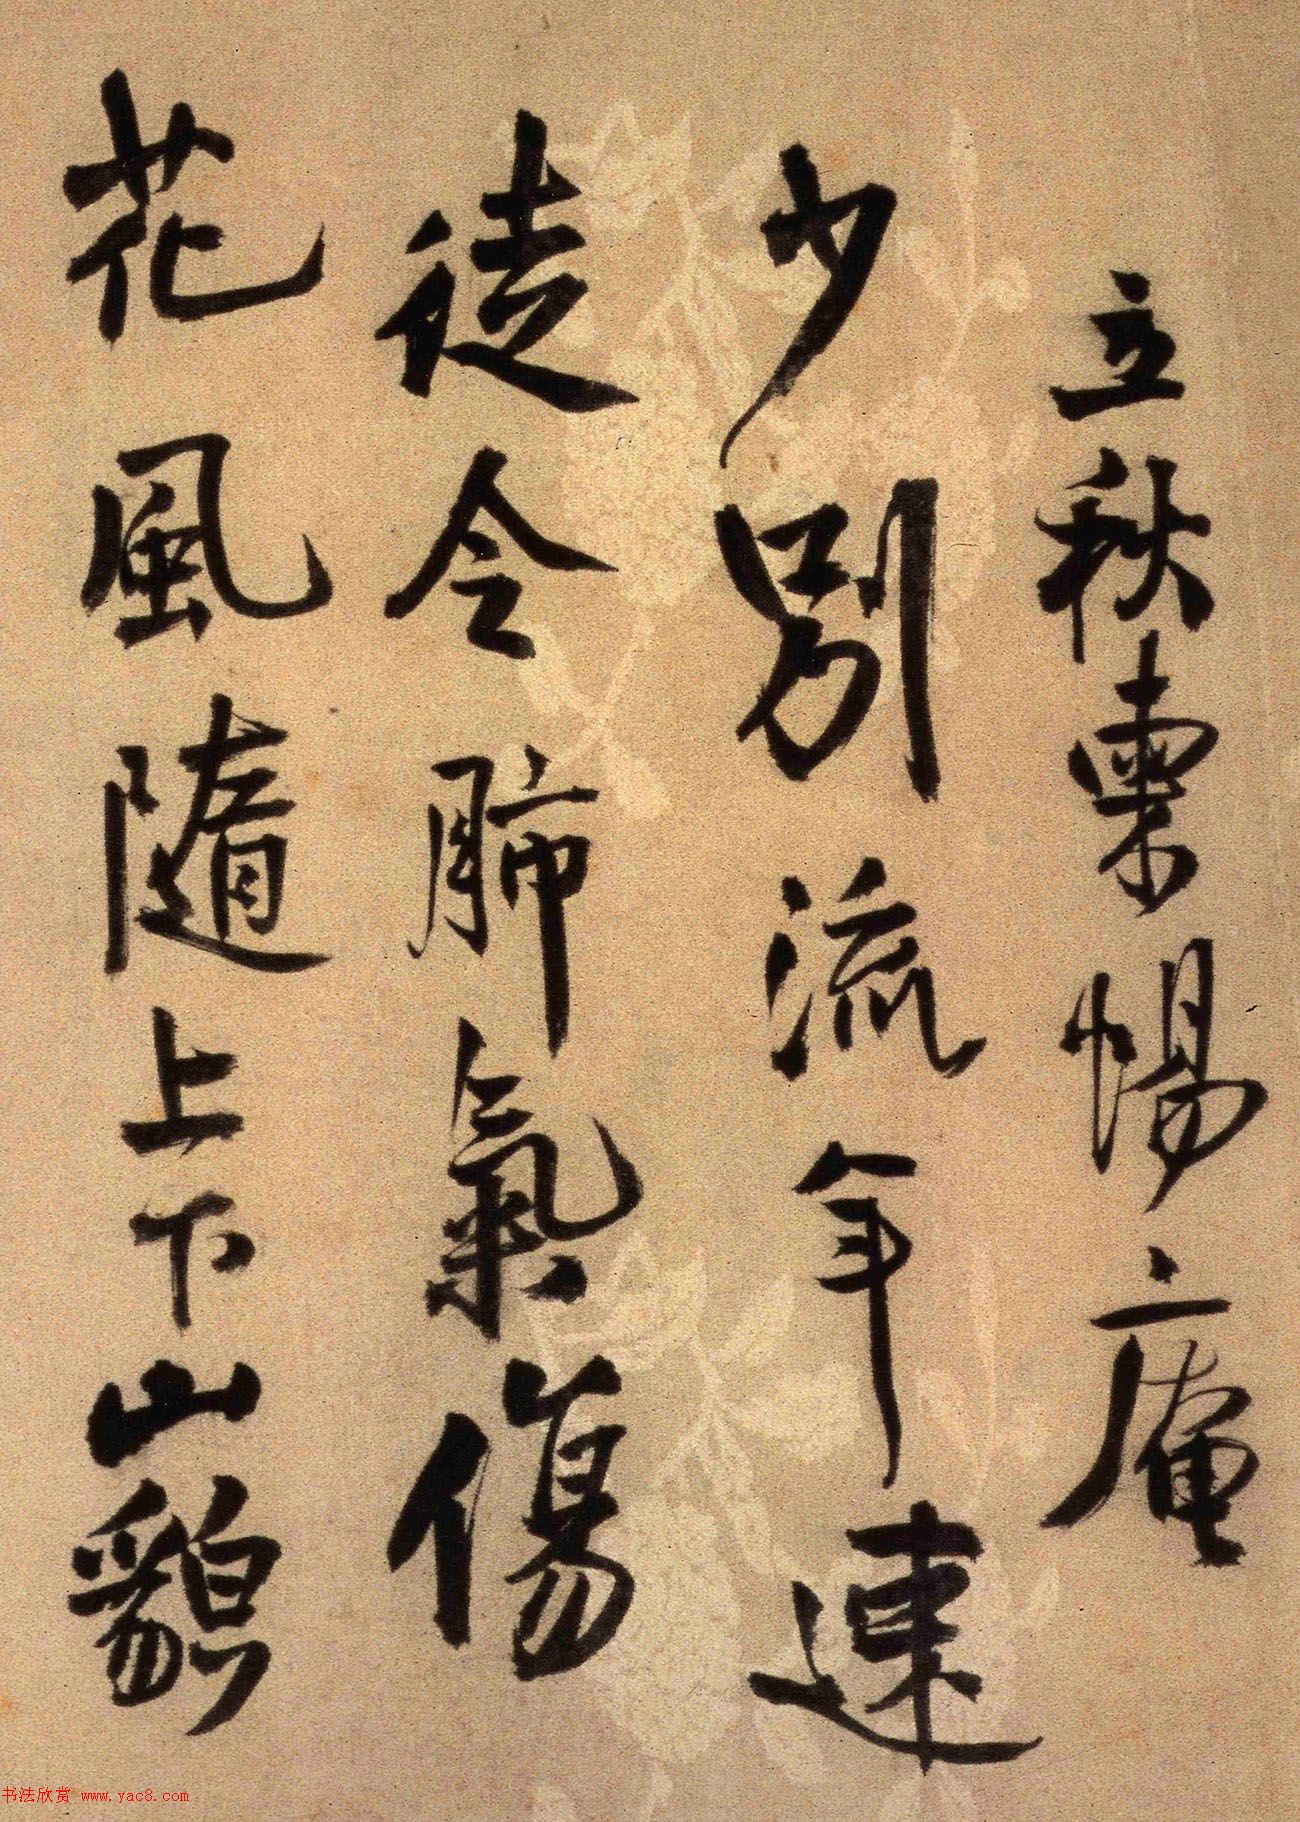 立秋柬暢庵
少別流年速
徒令肺氣傷
花風隨上下山貌
书法欣赏 www.yac8.com